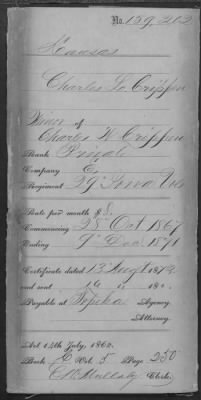 No. 159,202
Kansas
Charles L. Crippen
Minor of
Charles W. Crippen
Rank Private
Company E,
Regiment 29" Iowa Vols
Rate per month $8.
Commencing 28" Oct 1867
Ending 9" Dec 1871
Certificate dated 13" Augt 1872
and sent 19 " 187 .
Payable at Topeka Agency.
Attorney.
Act 14th July, 1862.
Book E Vol. 5 Page 250
Clerk.